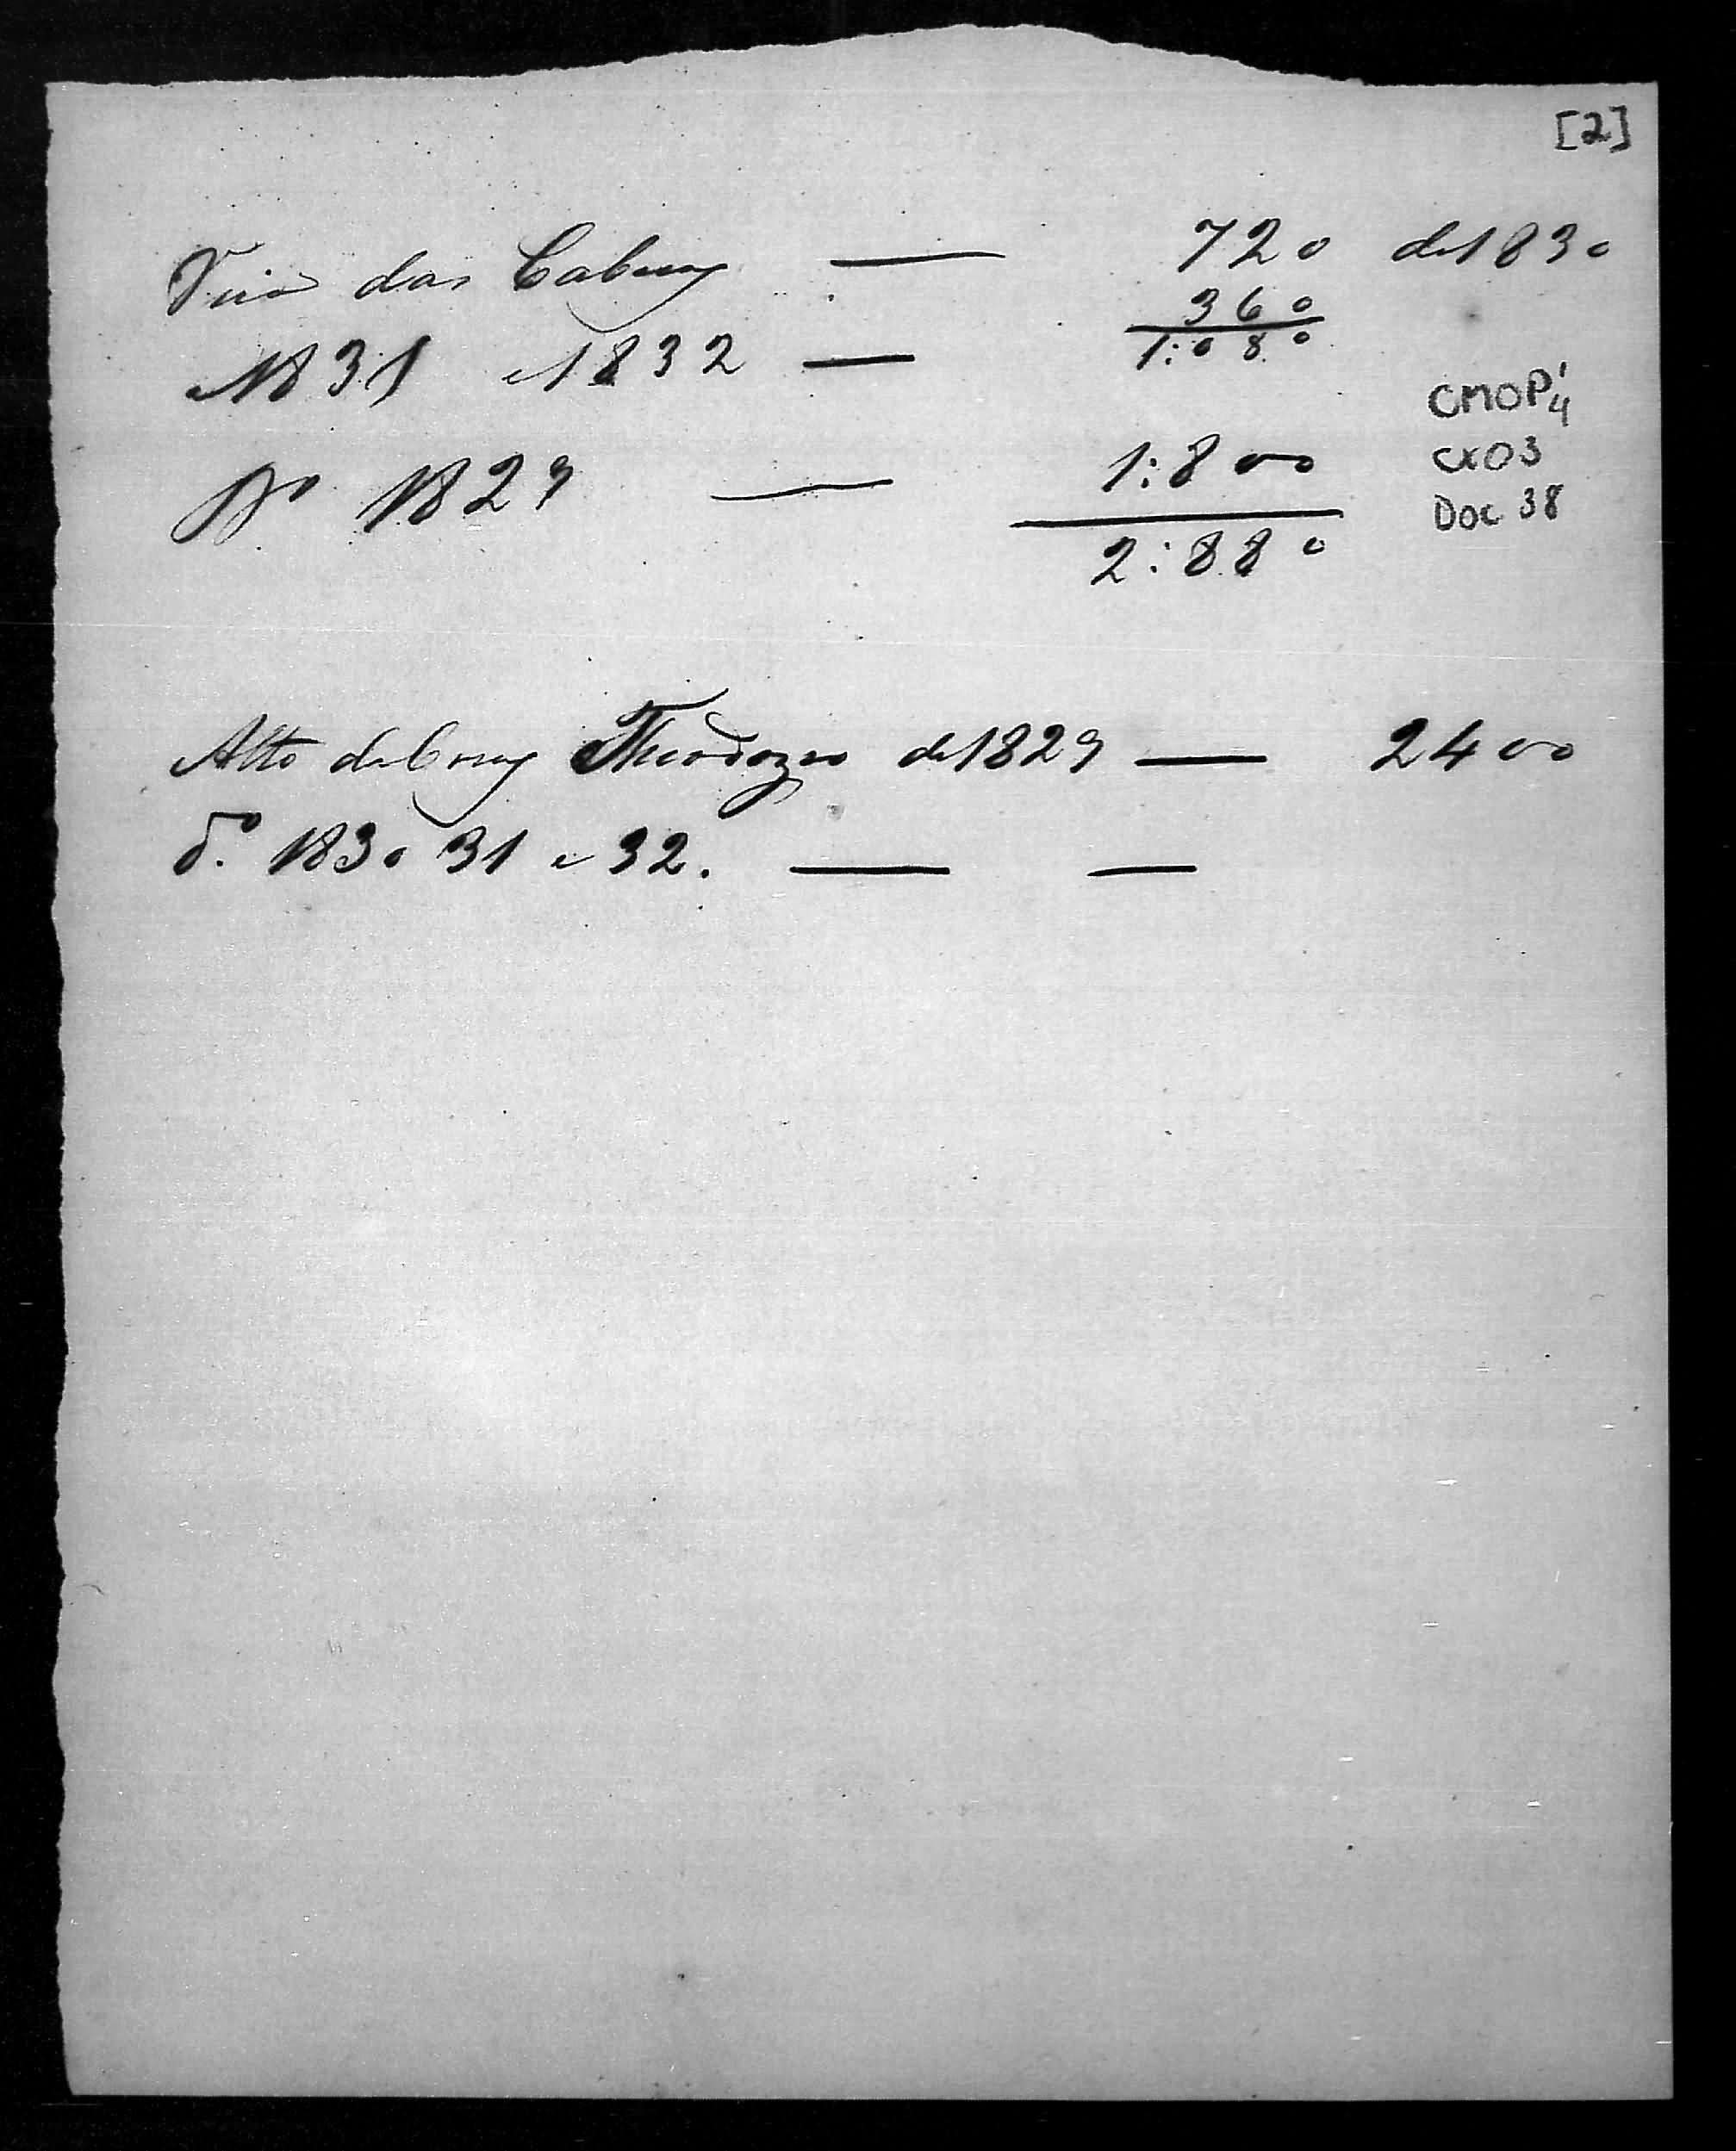 [2]
das Cabeças — 720 de 1830
360
e 1831 e 1832 — 1:080
CMOP 1/4
Dº 1829 — 1:800
CX03
Doc 38
2:880
Alto da Cruz Theodozio de 1829 — 2400
dº. 1830 31 e 32. — —